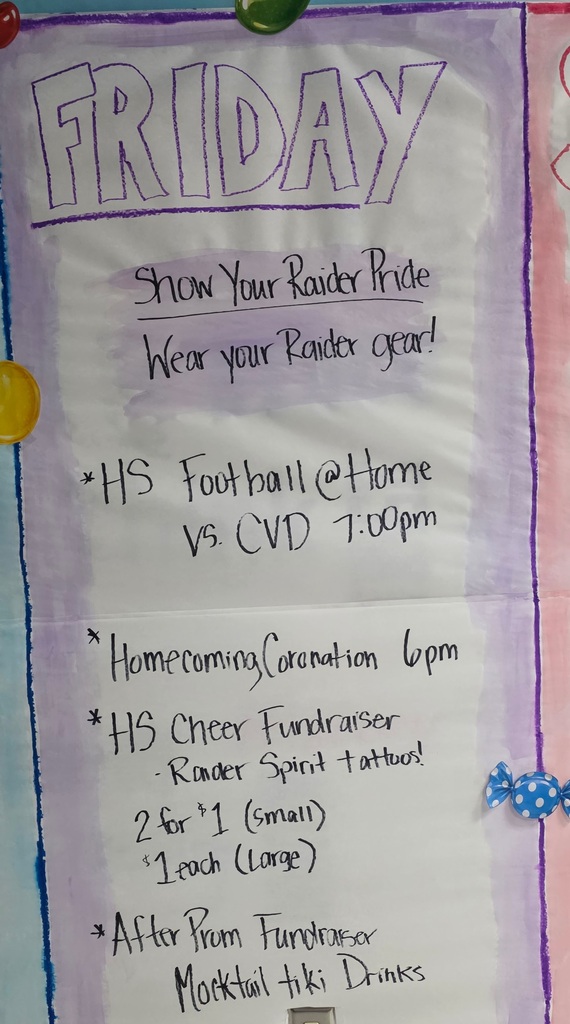 FRIDAY
Show Your Raider Pride
Wear your Raider gear!
*HS Football @ Home
VS. CVD 7:00pm
*Homecoming Coronation 6pm
*HS Cheer Fundraiser
- Raider Spirit tattoos!
2 for $1 (small)
$1 each (Large)
*After Prom Fundraiser
Mocktail tiki Drinks